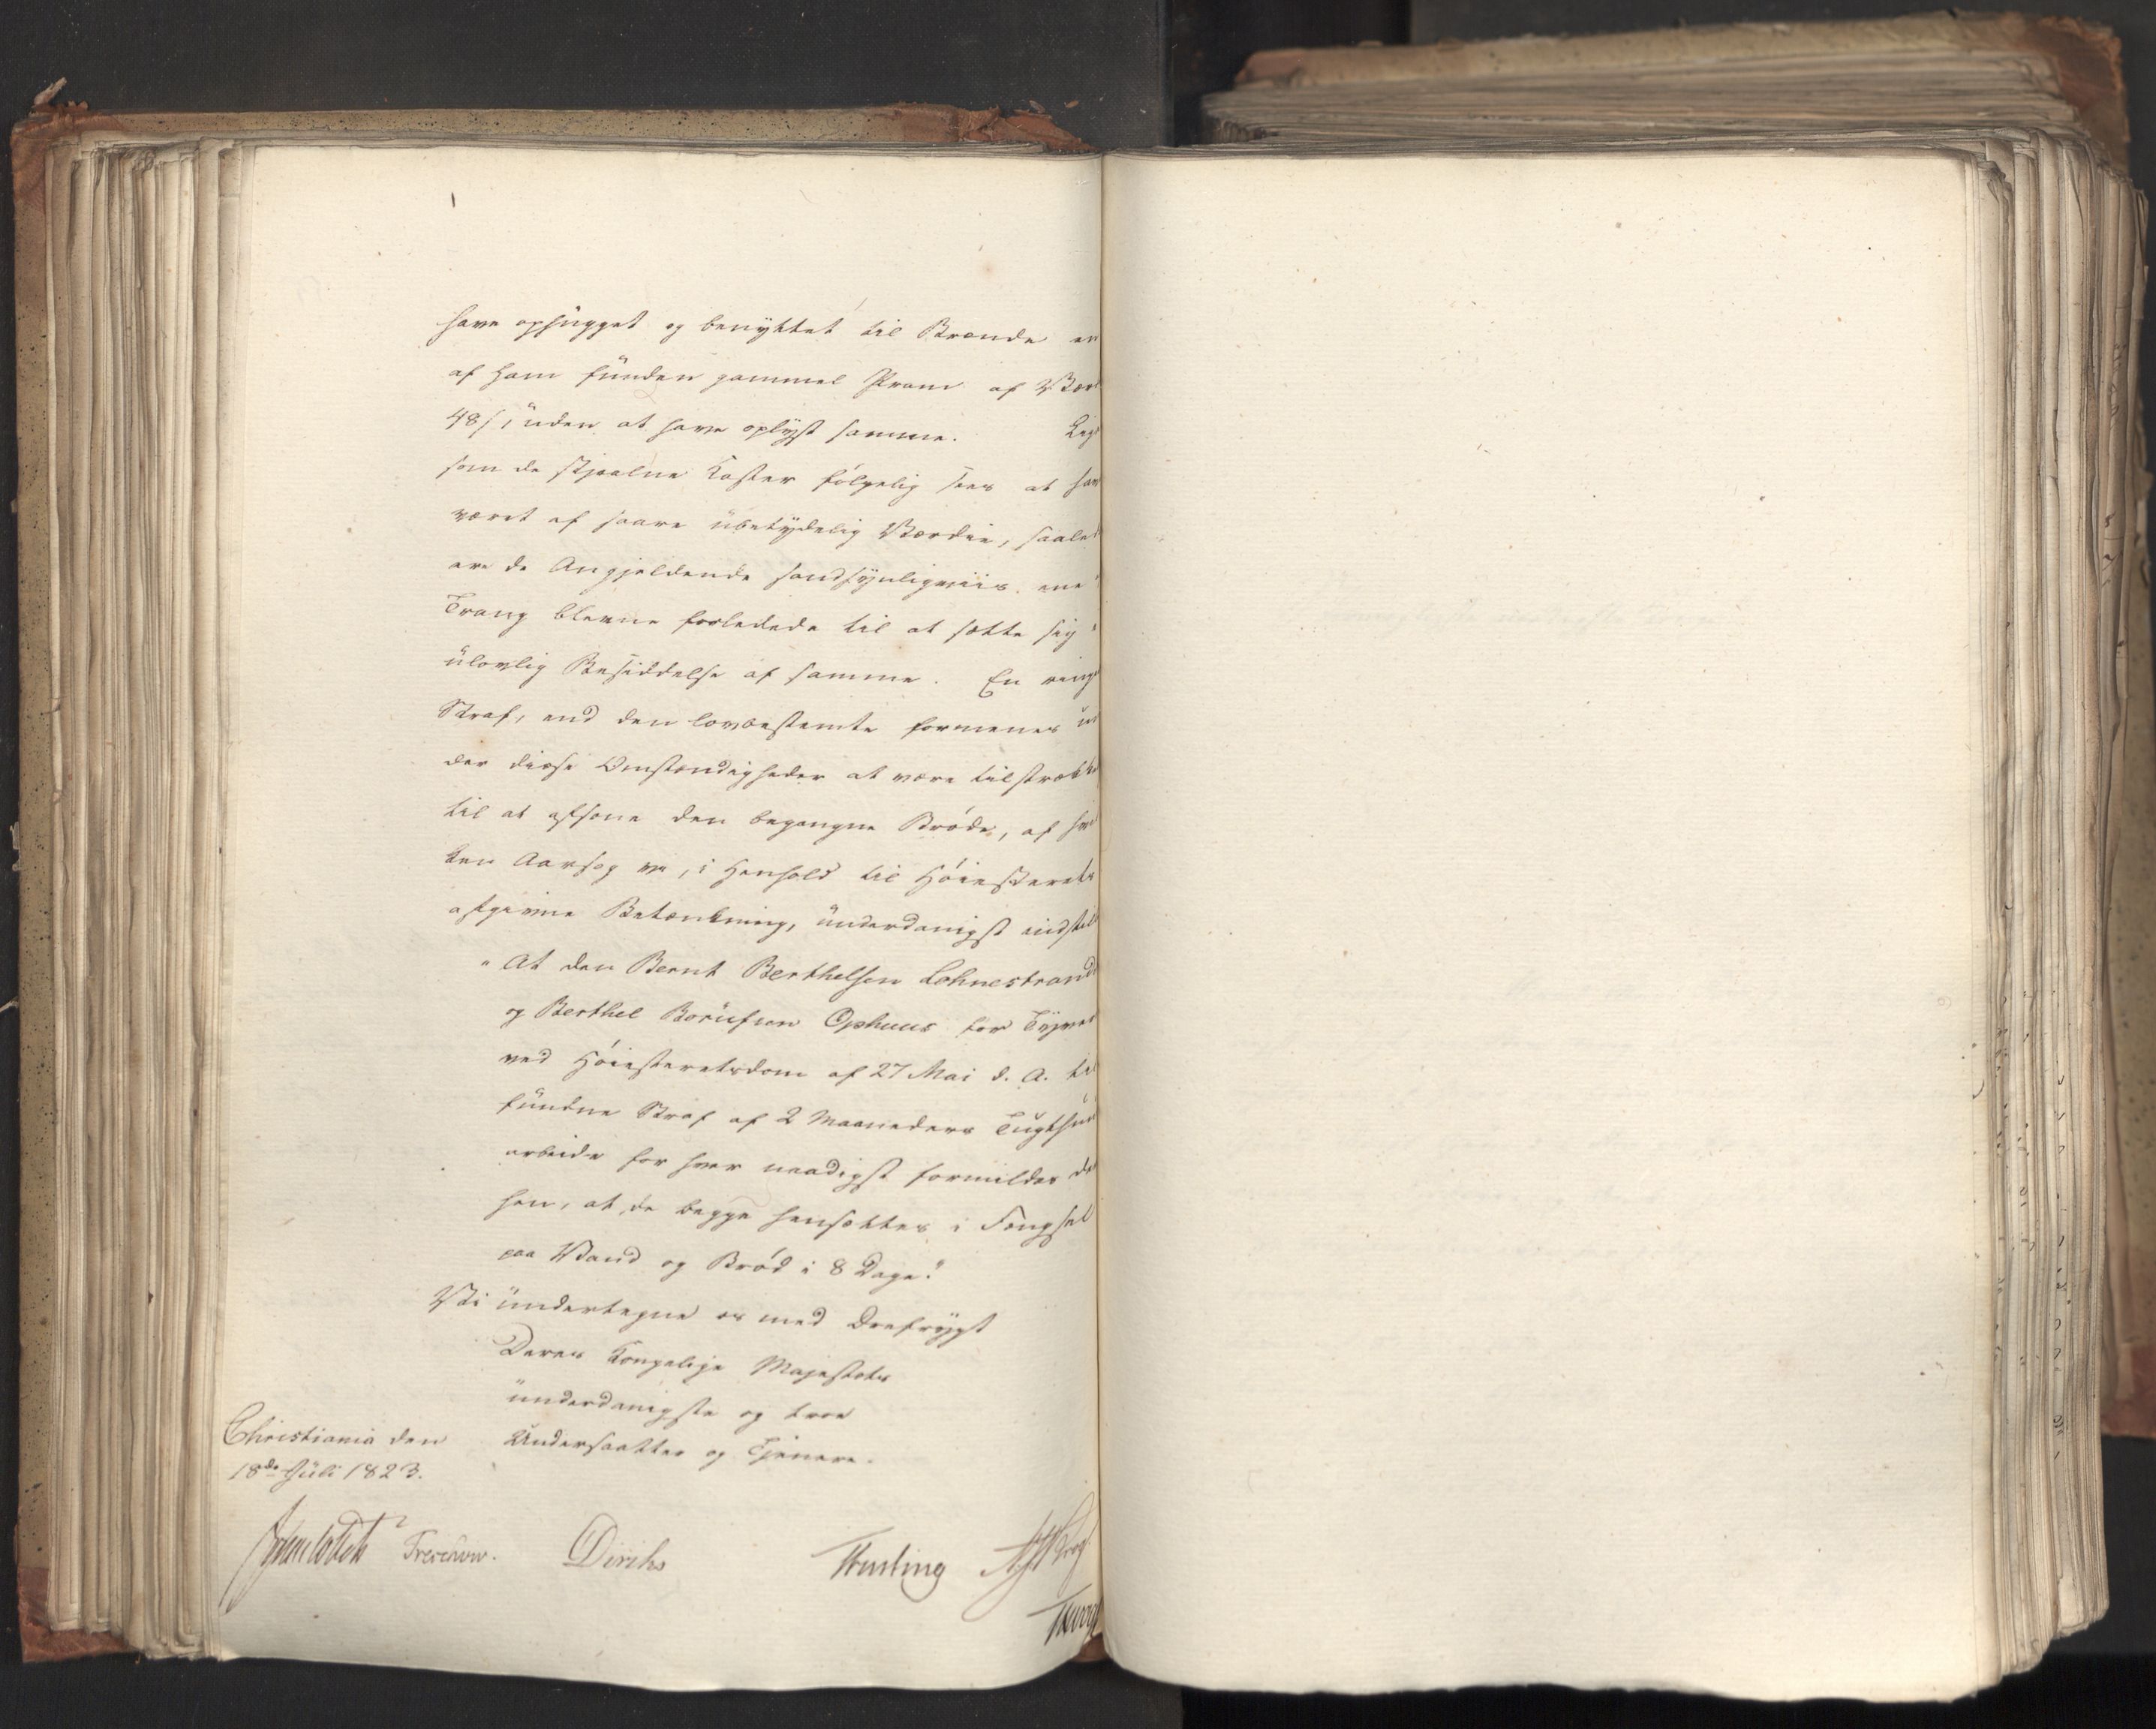 have ophugget og benyttet til Brænde en
af ham funden gammel Pram af Værd
48 s, uden at have oplyst samme. Lige
som de stjaalne Koster følgelig sees at hav
været af saare ubetydelig Værdie, saaled
ere de Angjeldende sandsynligviis
Trang blevne forledede til at sætte sig i
ulovlig Besiddelse af samme. En ringe
Straf, end den lovbestemte formenes un
der disse Omstændigheder at være tilstrække
til at afsone den begangne Brøde, af hvil
ken Aarsag vi, i Henhold til Høiesterets
afgivne Betænkning, underdanigst indstil
"At den Bernt Berthelsen Lehnestrand
og Berthel Boruksen Ophuus for Tyve
ved Høiesteretsdom af 27 Mai d. A. til
fundne Straf af 2 Maaneders Tugthuus
arbeide for hver naadigst formildes der
hen, at de begge hensættes i Fængsel
paa Vand og Brød i 8 Dage."
Vi undertegne os med Drefrygt
Deres Kongelige Majestæts
underdanigste og troe
Undersaatter og Tjenere.
Christiania den
18de Juli 1823.
Treschow. Diriks